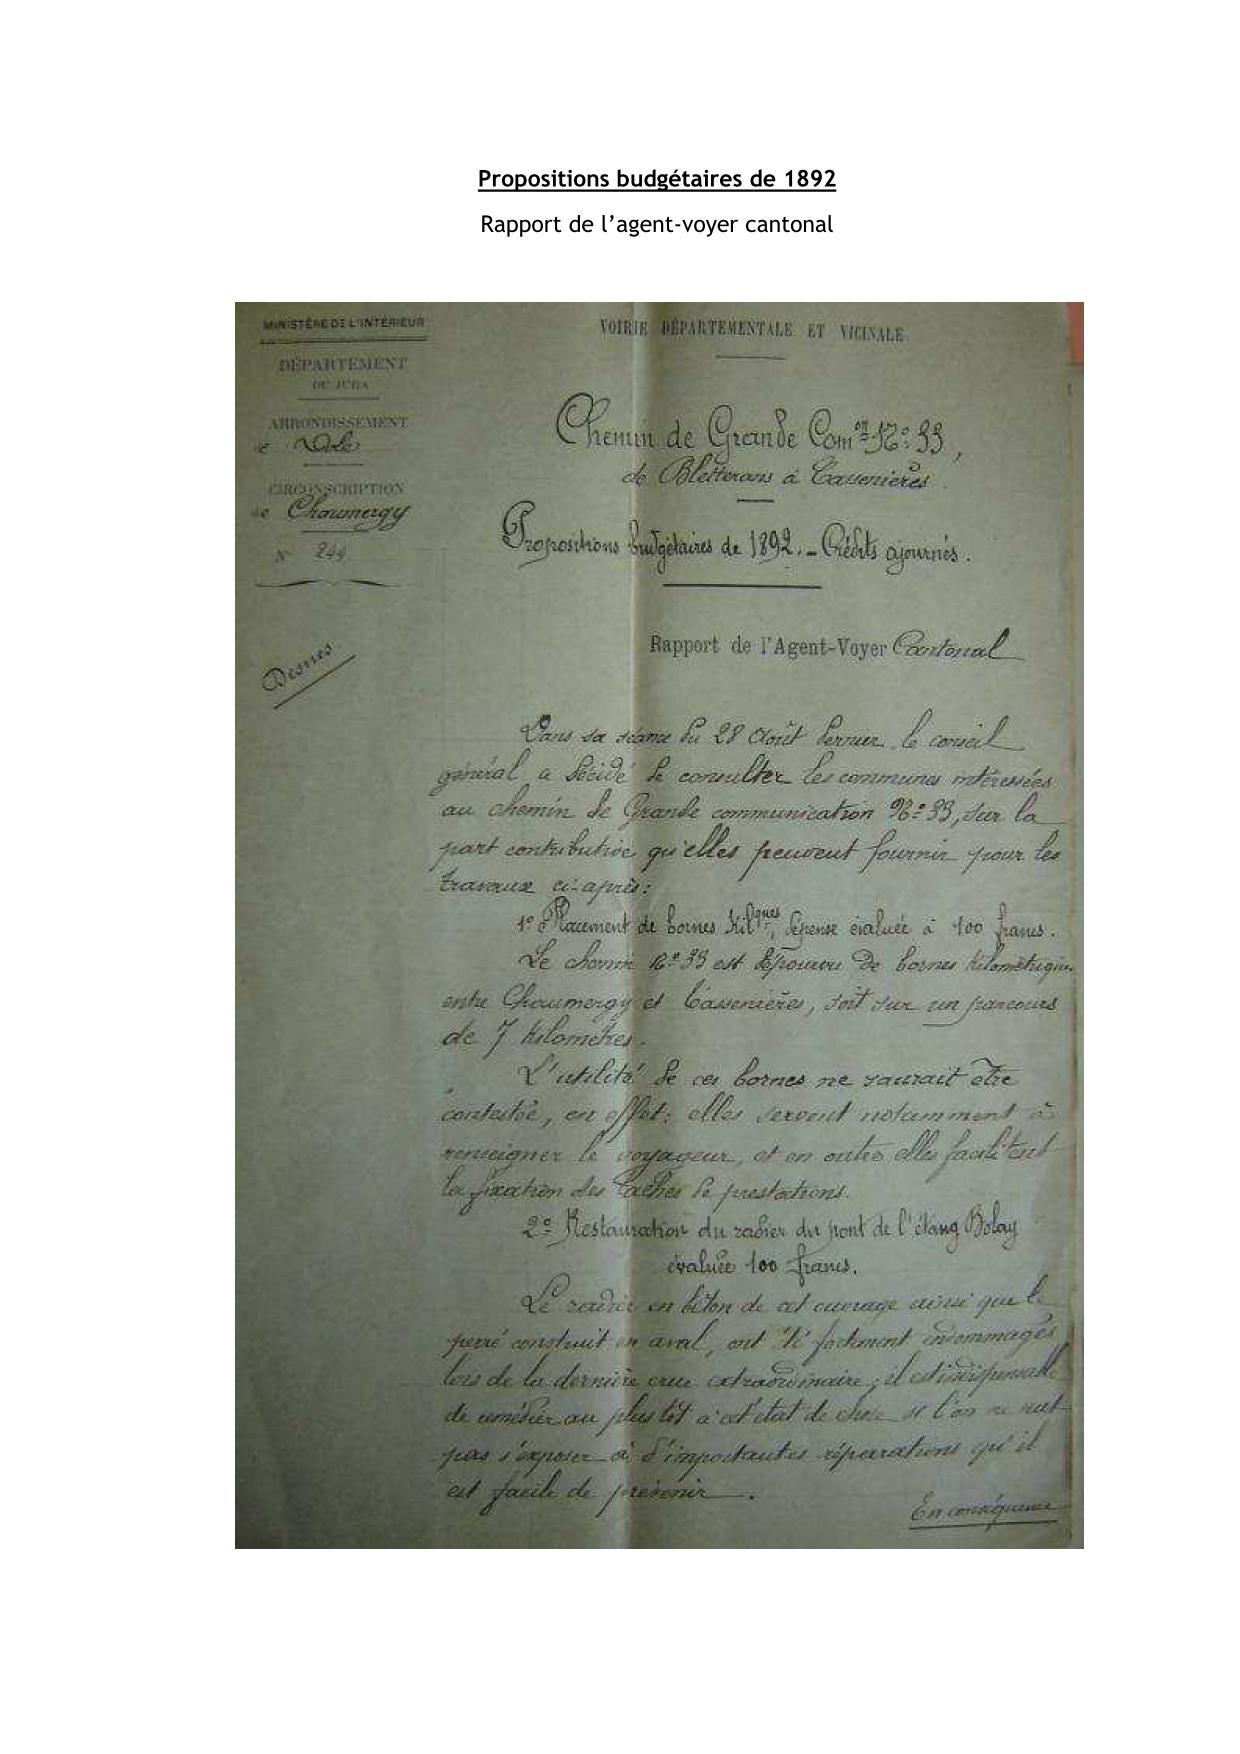 Propositions budgétaires de 1892
Rapport de l’agent-voyer cantonal
MINISTÈRE DE L'INTÉRIEUR
DÉPARTEMENT
DU JURA
ARRONDISSEMENT
de Dole
CIRCONSCRIPTION
de Chaumergy
N° 244
Desnes
VOIRIE DÉPARTEMENTALE ET VICINALE
Chemin de Grande Comon N° 33,
de Bletterans à Tassenières.
Propositions budgétaires de 1892. - Crédits ajournés.
Rapport de l'Agent-Voyer Cantonal
Dans sa séance du 28 Août dernier, le conseil
général a décidé de consulter les communes intéressées
au chemin de Grande communication N° 33, sur la
part contributive qu'elles peuvent fournir pour les
travaux ci-après:
1° Placement de bornes Kilques, dépense évaluée à 100 francs.
Le chemin N° 33 est dépourvu de bornes kilométriques
entre Chaumergy et Tassenières, soit sur un parcours
de 7 kilomètres.
L'utilité de ces bornes ne saurait être
contestée, en effet: elles servent notamment à
renseigner le voyageur, et en outre elles facilitent
la fixation des tâches de prestations.
2° Restauration du radier du pont de l'étang Bolay
évaluée 100 francs.
Le radier en béton de cet ouvrage ainsi que le
perré construit en aval, ont été fortement endommagés
lors de la dernière crue extraordinaire; il est indispensable
de remédier au plus tôt à cet état de chose si l'on ne veut
pas s'exposer à d'importantes réparations qu'il
est facile de prévenir.
En conséquence